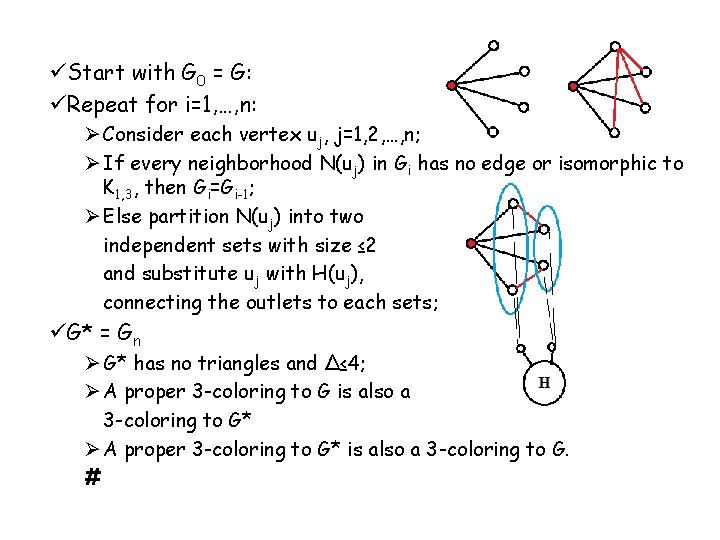 ✓Start with G0 = G:
✓Repeat for i=1,…,n:
➢Consider each vertex uj, j=1,2,…,n;
➢If every neighborhood N(uj) in Gi has no edge or isomorphic to
K1,3, then Gi=Gi-1;
➢Else partition N(uj) into two
independent sets with size ≤2
and substitute uj with H(uj),
connecting the outlets to each sets;
✓G* = Gn
➢G* has no triangles and Δ≤4;
➢A proper 3-coloring to G is also a
3-coloring to G*
➢A proper 3-coloring to G* is also a 3-coloring to G.
#
H